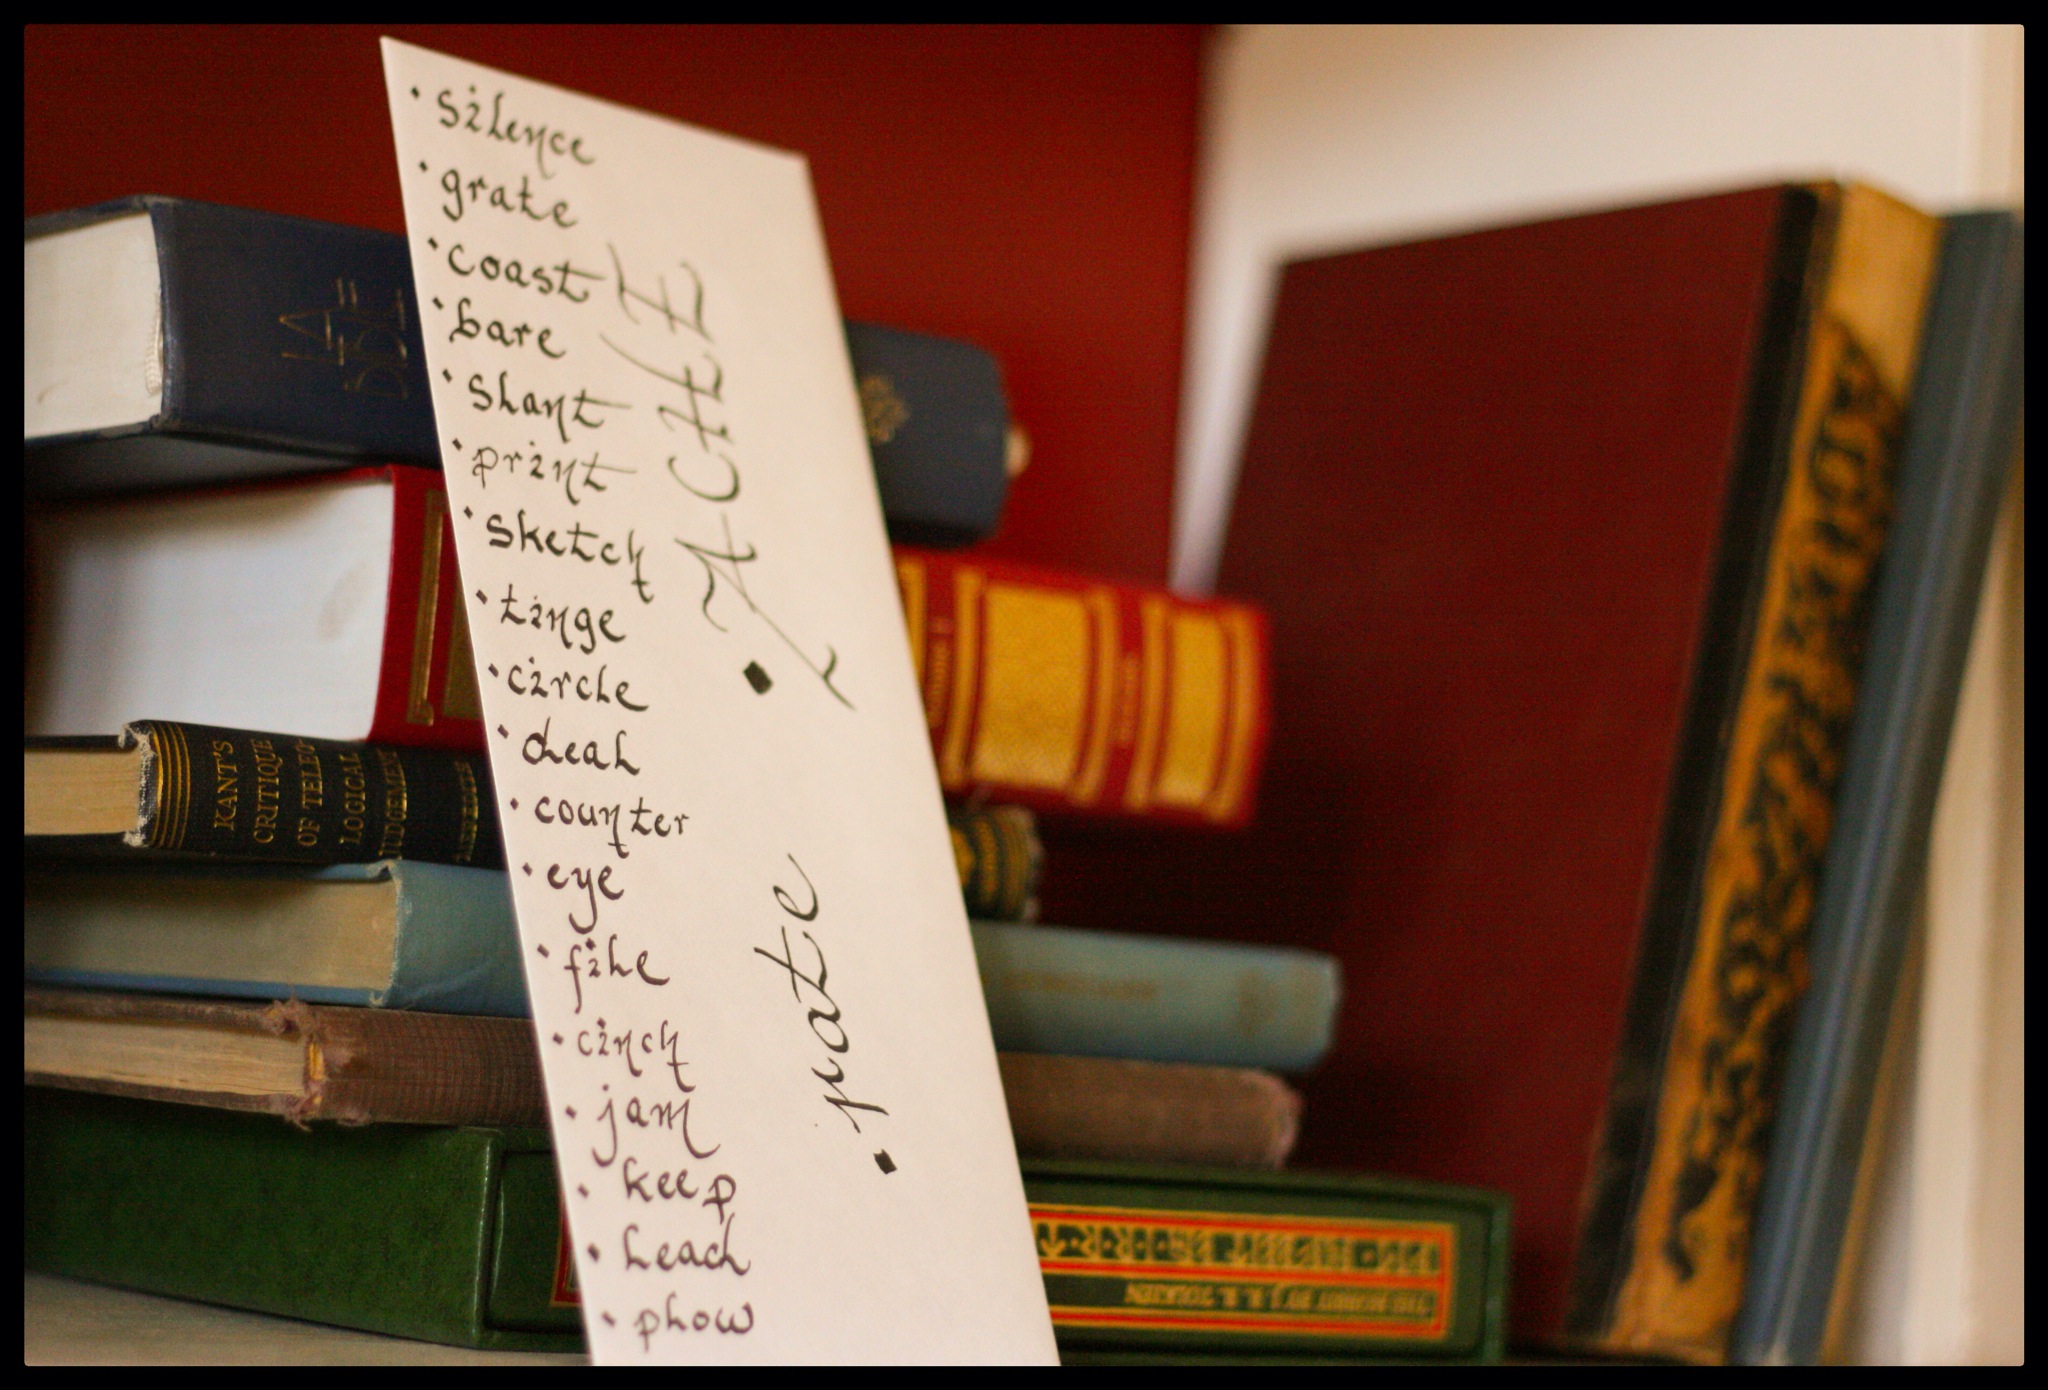 • silence
• grate
• coast
• bare
• slant
• print
• sketch
• tinge
• circle
• deal
• counter
• eye
• file
• cinch
• jam
• keep
• lead
• plow
• ACHE
KANT'S
CRITIQUE
OF TELEO
LOGICAL
JUDGEMENT
THE HOBBIT BY J. R. R. TOLKIEN